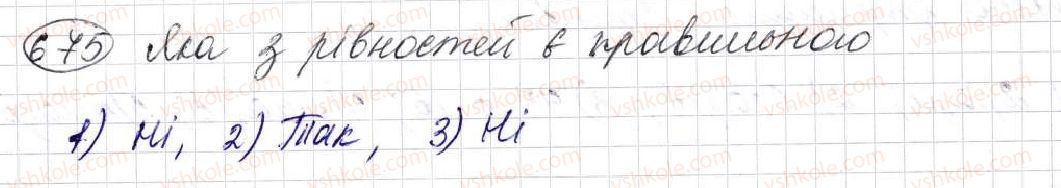 675 Яка з рівностей є правильною
1) Ні, 2) Так, 3) Ні